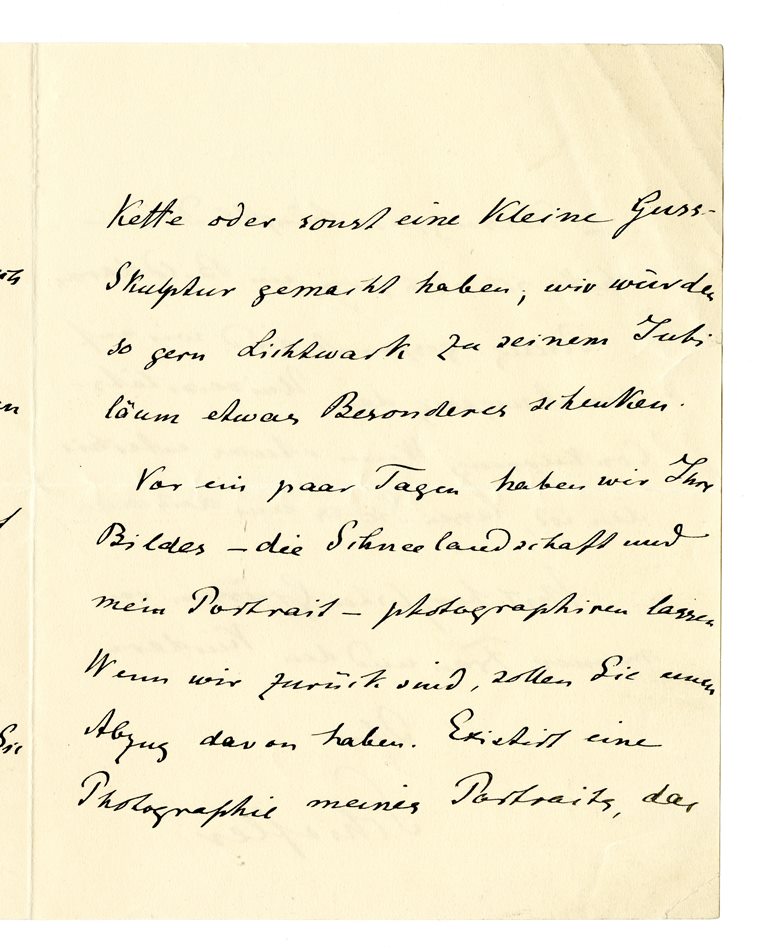 Kette oder sonst eine kleine Guss-
Skulptur gemacht haben, wir würden
so gern Lichtwark zu seinem Jubi-
läum etwas Besonderes schenken.
Vor ein paar Tagen haben wir Ihre
Bilder – die Schneelandschaft und
mein Portrait – photographiren lassen
Wenn wir zurück sind, sollen Sie einen
Abzug davon haben. Existirt eine
Photographie meines Portraits, das
Sie